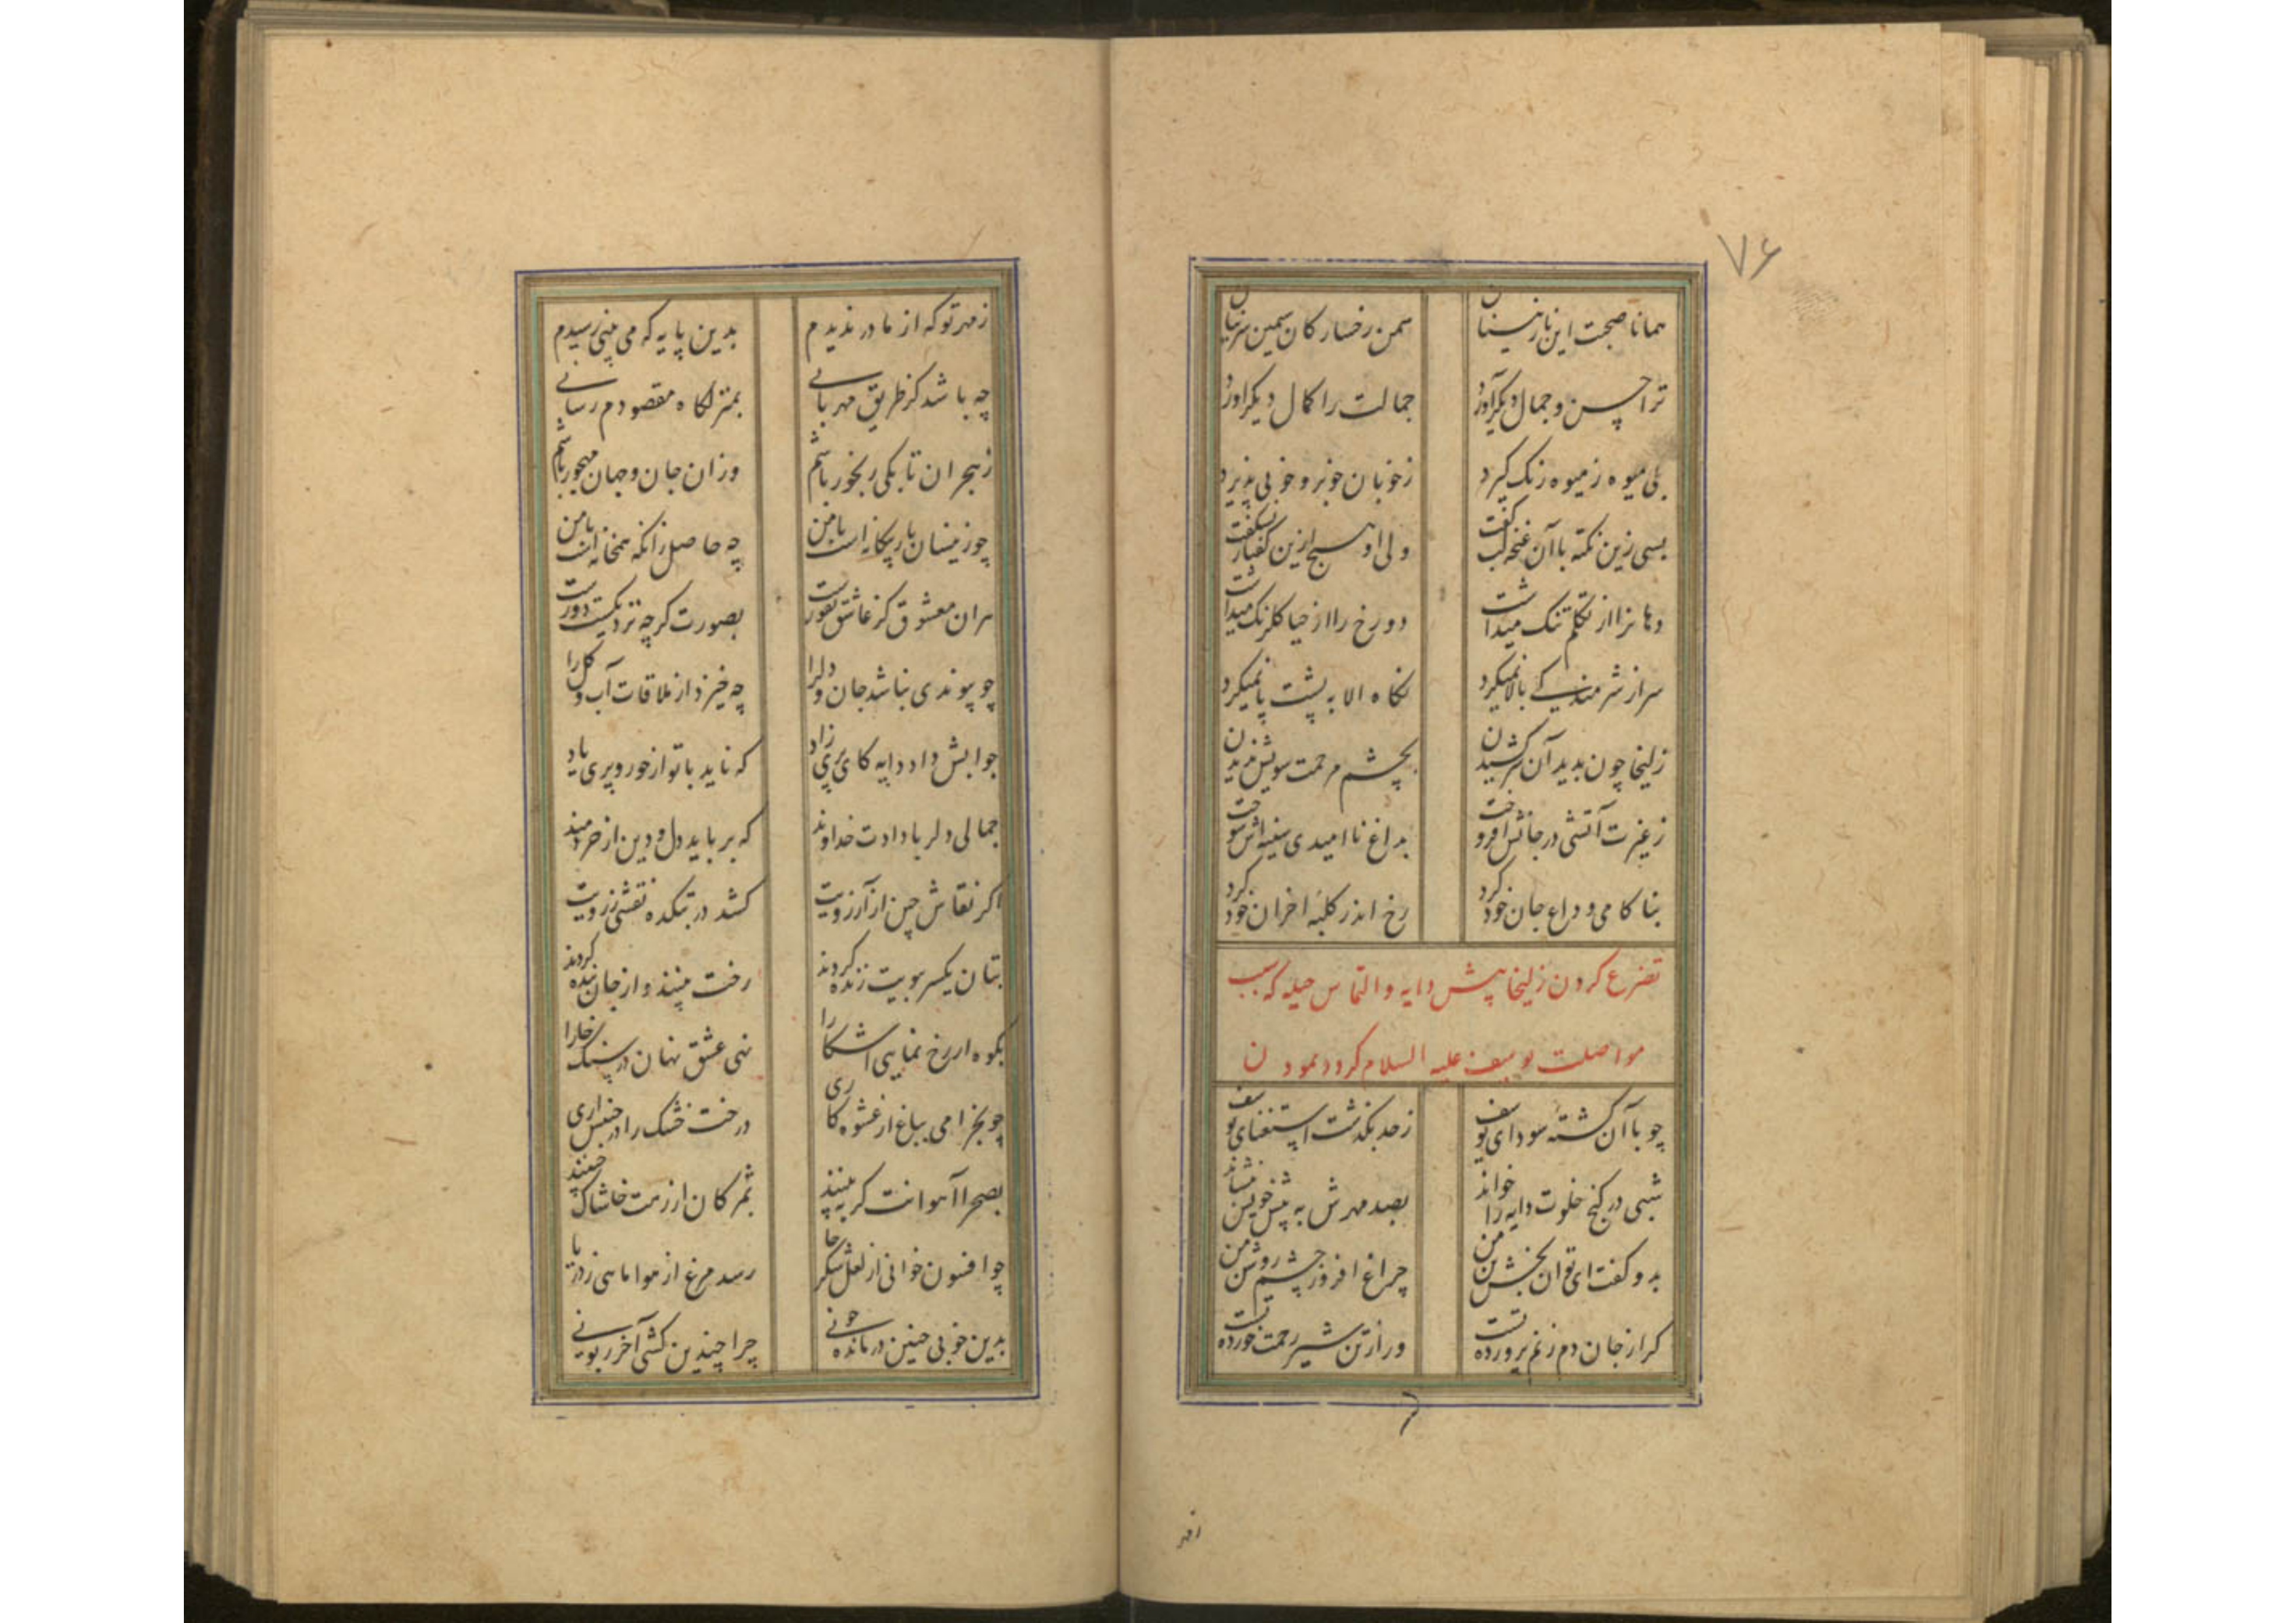 ۷۶
همانا صحبت این نازنینان سمن رخسارکان سیمین سرینان
ترا حسن و جمال دیگر آورد جمالت را کمال دیگر آورد
بلی میوه ز میوه رنک کیرد ز خوبان خوبرو خوبی پذیرد
بسی زین نکته با آن غنچه لب کفت ولی او هیچ ازین کفتار نشکفت
دهانرا از تکلم تنک میداشت دو رخ را از حیا کلرنک میداشت
سر از شرمندکی بالا نمیکرد نکاه الا به پشت پا نمیکرد
زلیخا چون بدید آن سرکشیدن بچشم مرحمت سویش ندیدن
ز غیرت آتشی در جانش افروخت بداغ ناامیدی سینه اش سوخت
بناکامی وداع جان خود کرد رخ اندر کلبه احزان خود کرد
تضرع کردن زلیخا پیش دایه و التماس حیله که سبب
مواصلت یوسف علیه السلام کردد نمودن
چو با آن کشته سودای یوسف ز حد بکذشت استغنای یوسف
شبی در کنج خلوت دایه را خواند بصد مهرش به پیش خویش بنشاند
بدو کفت ای توان بخش تن من چراغ افروز چشم روشن من
کر از جان دم زنم پرورده تست ور از تن شیر رحمت خورده تست
زمهر
زمهر تو که از مادر ندیدم بدین پایه که می بینی رسیدم
چه باشد کز طریق مهربانی بمنزلکاه مقصودم رسانی
ز هجران تا بکی رنجور باشم وزان جان و جهان مهجور باشم
چو زینسان یار بیکانه است با من چه حاصل زانکه همخانه است با من
هران معشوق کز عاشق نفورست بصورت کرچه نزدیکست دورست
چو پیوندی نباشد جان و دلرا چه خیزد از ملاقات آب و کل را
جوابش داد دایه کای پری زاد که ناید با تو از حور و پری یاد
جمالی دلربا دادت خداوند که برباید دل و دین از خردمند
اکر نقاش چین از آرزویت کشد در بتکده نقشی ز رویت
بتان یکسر بویت زنده کردند رخت بینند و از جان بنده کردند
بکوه ار رخ نمایی آشکارا نهی عشق نهان در سنک خارا
چو بخرامی بباغ از عشوه کاری درخت خشک را در جنبش آری
بصحرا آهوانت کر به بینند بمژکان از رهت خاشاک چینند
چو افسون خوانی از لعل شکرخا رسد مرغ از هوا ماهی ز دریا
بدین خوبی چنین درمانده چونی چرا چندین کشی آخر زبونی